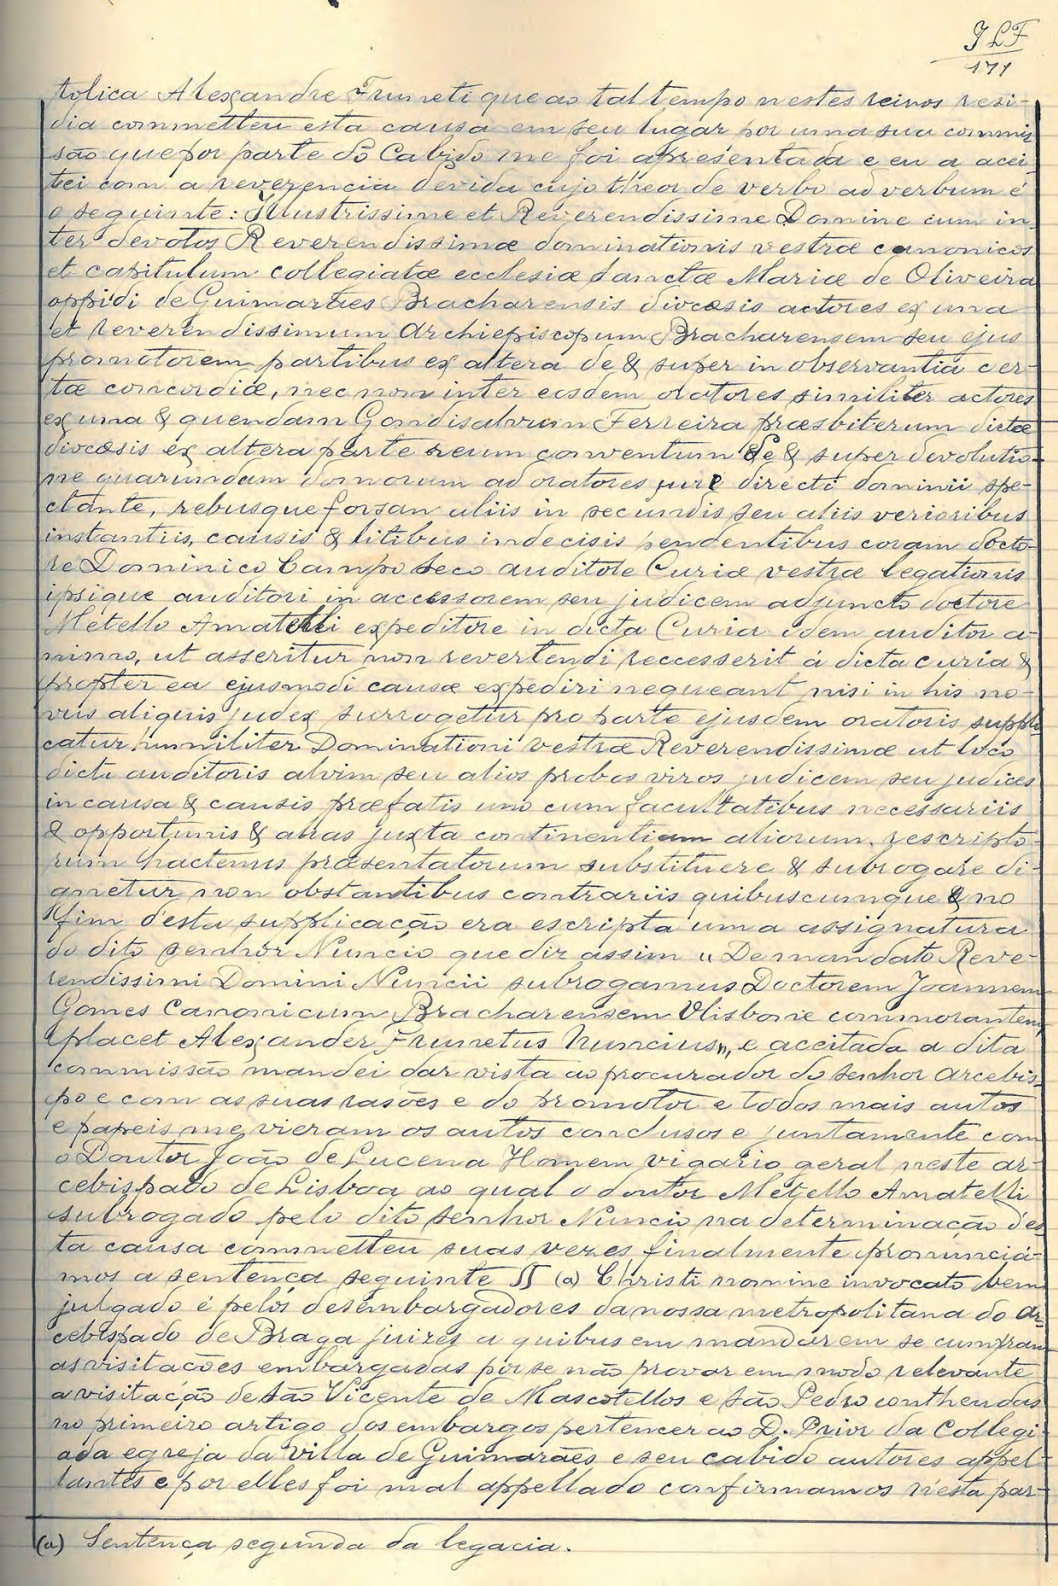 JLF
171
tolica Alexandre Frumeti que ao tal tempo nestes reinos resi-
dia commetteu esta causa em seu lugar por uma sua commis-
são que por parte do Cabido me foi apresentada e eu a acei-
tei com a reverencia devida cujo theor de verbo ad verbum é
o seguinte: Illustrissime et Reverendissime Domine cum in-
ter devotos Reverendissimæ dominationis vestræ canonicos
et capitulum collegiatæ ecclesiæ Sanctæ Mariæ de Oliveira
oppidi de Guimarães Bracharensis diocæsis actores ex una
et reverendissimum Archiepiscopum Bracharensem seu ejus
promotorem partibus ex altera de & super in observantia cer-
tæ concordiæ, nec non inter eosdem oratores similiter actores
ex una & quendam Gondisalvum Ferreira præsbiterum dictæ
diocæsis ex altera parte reum conventum de & super devolutio-
ne quarundam domorum ad oratores jure directi dominii spe-
ctante, rebusque forsan aliis in secundis seu aliis verioribus
instantiis, causis & litibus indecisis pendentibus coram docto-
re Dominico Campo Seco auditore Curiæ vestræ legationis
ipsique auditori in accessorem seu judicem adjuncto doctore
Metello Amatelli expeditore in dicta Curia idem auditor a-
nimo, ut asseritur non revertendi reccesserit á dicta curia &
propter ea ejusmodi causæ expediri nequeant nisi in his no-
vus aliquis judex surrogetur pro parte ejusdem oratoris suppli-
catur humiliter Dominationi vestræ Reverendissimæ ut loco
dicti auditoris alvim seu alios probos viros judicem seu judices
in causa & causis præfatis uno cum facultatibus necessariis
& opportunis & alias juxta continentiam aliorum rescripto-
rum hactenus præsentatorum substituere & subrogare di-
gnetur non obstantibus contrariis quibuscumque & no
fim d'esta supplicação era escripta uma assignatura
do dito senhor Nuncio que diz assim „ De mandato Reve-
rendissimi Domini Nuncii subrogamus Doctorem Joannem
Gomes Canonicum Bracharensem Ulisbone commorantem
placet Alexander Frumetus Nuncius„, e aceitada a dita
commissão mandei dar vista ao procurador do senhor arcebis-
po e com as suas rasões e do promotor e todos mais autos
e papeis me vieram os autos conclusos e juntamente com
o Doutor João de Lucena Homem vigario geral neste ar-
cebispado de Lisboa ao qual o doutor Metello Amatelli
subrogado pelo dito senhor Nuncio na determinação des-
ta causa commetteu suas vezes finalmente pronunciá-
mos a sentença seguinte § (a) Christi nomine invocato bem
julgado é pelos desembargadores da nossa metropolitana do ar-
cebispado de Braga juizes a quibus em mandarem se cumpram
as visitacões embargadas por se não provar em modo relevante
a visitação de São Vicente de Mascotellos e São Pedro conthendas
no primeiro artigo dos embargos pertencer ao D. Prior da Collegi-
ada egreja da villa de Guimarães e seu cabido autores appel-
lantes e por elles foi mal appellado confirmamos n'esta par-
(a) Sentença segunda da legacia.